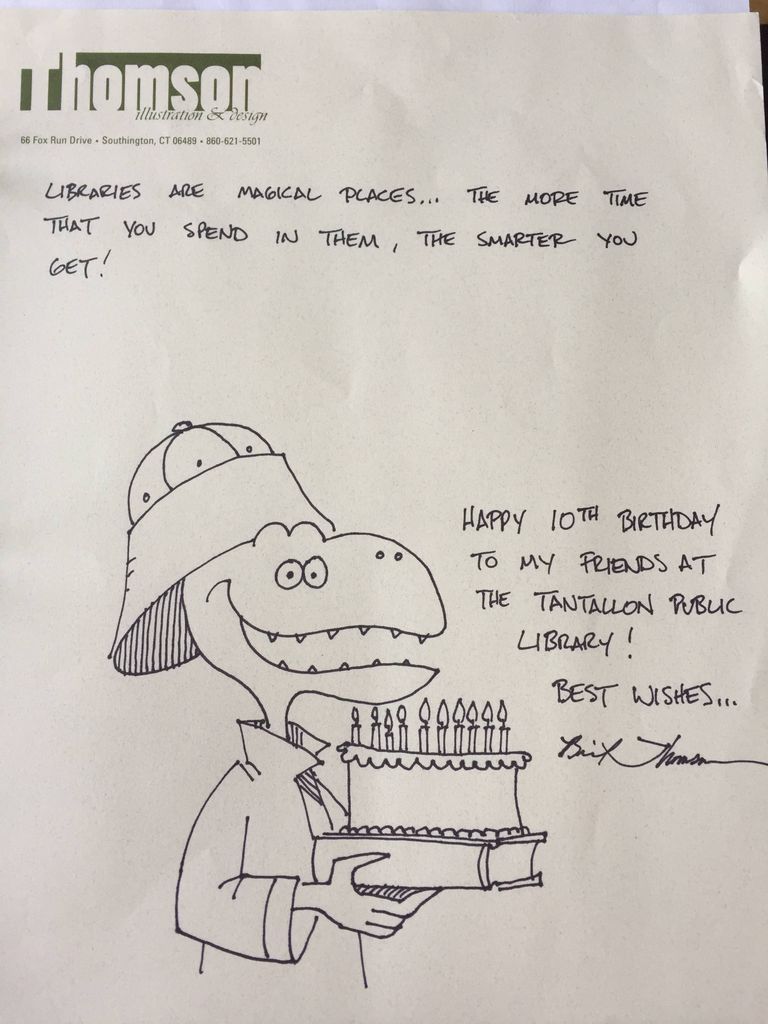 Thomson
illustration & design
66 Fox Run Drive • Southington, CT 06489 • 860-621-5501
LIBRARIES ARE MAGICAL PLACES... THE MORE TIME
THAT YOU SPEND IN THEM, THE SMARTER YOU
GET!
HAPPY 10TH BIRTHDAY
TO MY FRIENDS AT
THE TANTALLON PUBLIC
LIBRARY!
BEST WISHES...
Bill Thomson